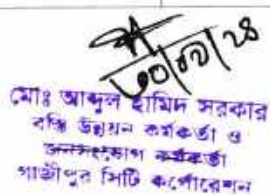 ৩০/০১/২৪
মোঃ আব্দুল হামিদ সরকার
বস্তি উন্নয়ন কর্মকর্তা ও
জনসংযোগ কর্মকর্তা
গাজীপুর সিটি কর্পোরেশন